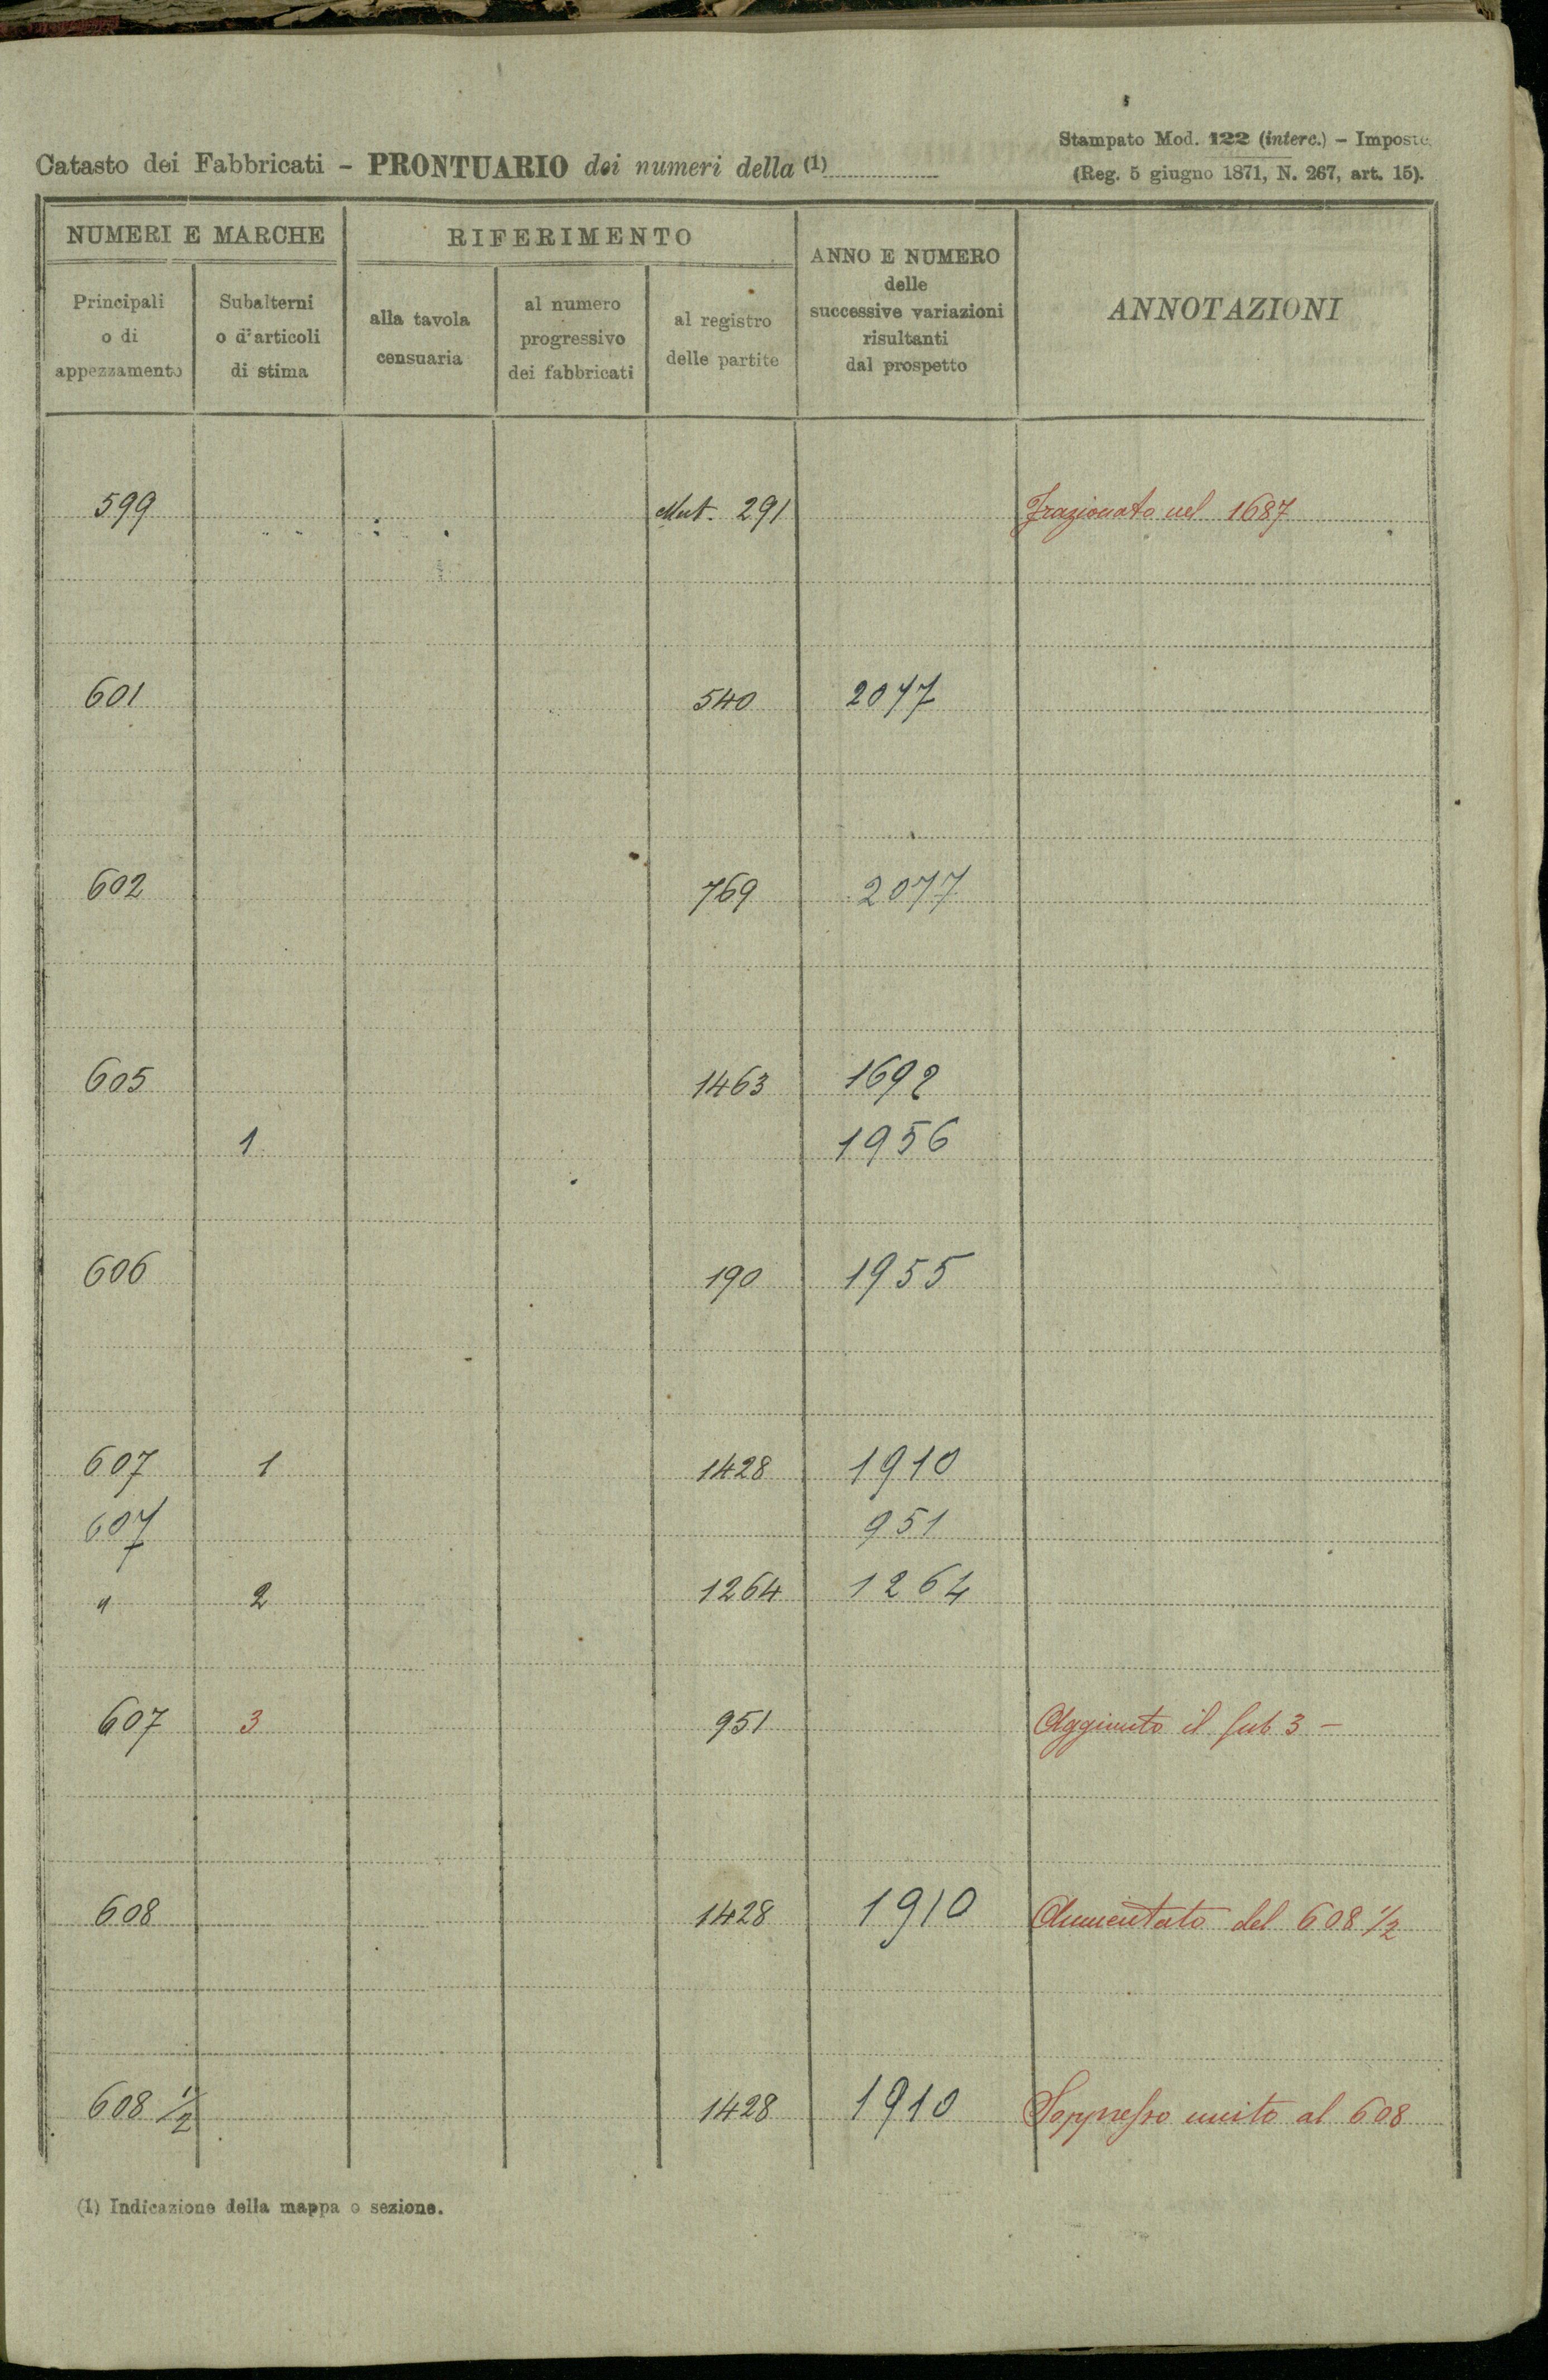 Catasto dei Fabbricati - PRONTUARIO dei numeri della (1)
Stampato Mod. 122 (interc.) - Imposte
(Reg. 5 giugno 1871, N. 267, art. 15).
NUMERI E MARCHE
RIFERIMENTO
ANNO E NUMERO
delle
successive variazioni
risultanti
dal prospetto
ANNOTAZIONI
Principali
o di
appezzamento
Subalterni
o d'articoli
di stima
alla tavola
censuaria
al numero
progressivo
dei fabbricati
al registro
delle partite
599 Mut. 291 Frazionato nel 1687
601 540 2077
602 769 2077
605 1463 1692
1 1956
606 190 1955
607 1 1428 1910
607 951
" 2 1264 1264
607 3 951 Aggiunto il sub 3 -
608 1428 1910 Aumentato del 608 1/2
608 1/2 1428 1910 Soppresso unito al 608
(1) Indicazione della mappa o sezione.